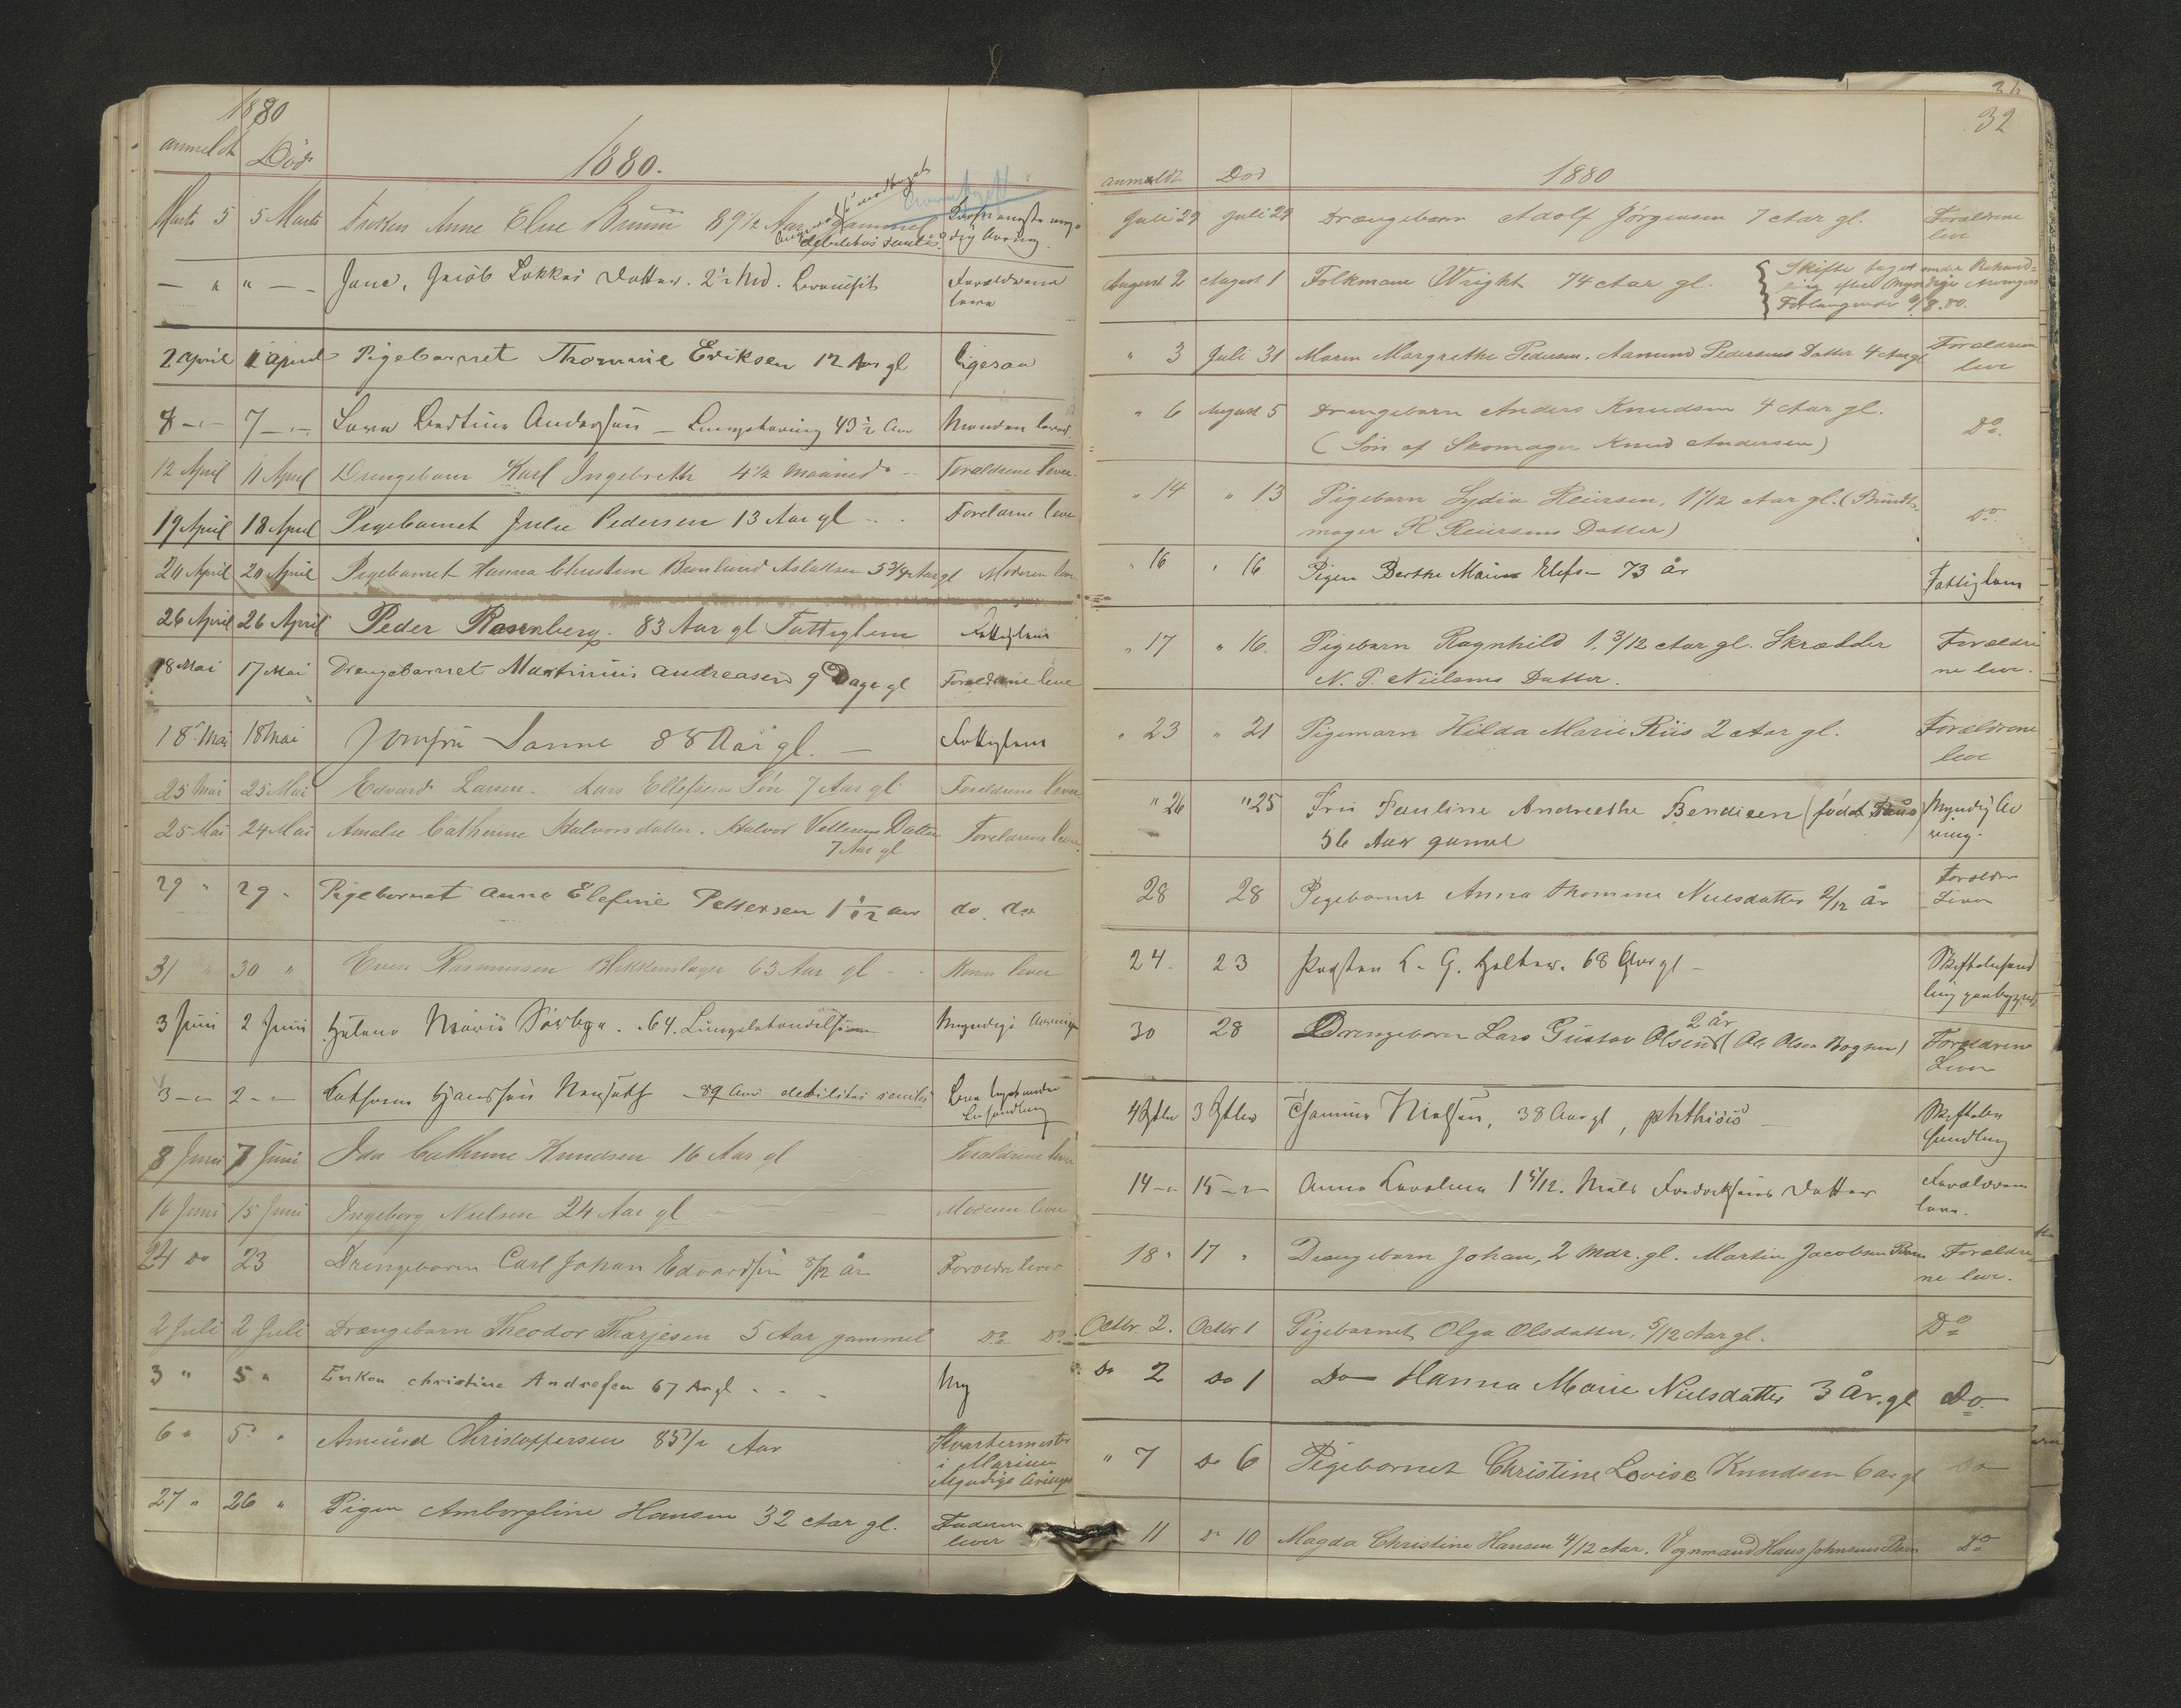 1880
anmeldt Död 1880.
Marts 5 5 Marts Frøken Anne Elise 89 1/2 Aar gammel
debilitas senilis
— " " — Jacob Datter. 2 1/2 Md. Forældrene
leve
2 April 1 April Pigebarnet Thomine Eriksen 12 Aar gl ligesaa
8 — 7 — Bertine Andersen — 43 1/2 Aar Manden lever
12 April 11 April Drengebarn Karl Ingebreth 4 1/2 Maaned Forældrene lever
19 April 18 April Pigebarnet Julie Pedersen 13 Aar gl Forældrene leve
20 April 20 April Pigebarnet Hanna Christine Aslaksen 5 3/4 Aar gl Moderen lever
26 April 26 April Peder Rosenberg. 83 Aar gl Fattiglem Fattiglem
18 Mai 17 Mai Drengebarnet Martinius Andreasen 9 Dage gl Forældrene leve
18 Mai 18 Mai Jomfru Sanne 88 Aar gl. — Fattiglem
25 Mai 25 Mai Edvard Larsen. Lars Ellefsens Søn 7 Aar gl Foreldrene lever
25 Mai 24 Mai Amalie Cathrine Halvorsdatter. Halvor Datter Forældrene lever
7 Aar gl
29 " 29 " Pigebarnet Anne Elefine Pettersen 1 1/12 aar do. do
31 " 30 " Even Rasmussen Blikkenslager 63 Aar gl Konen lever
3 Juni 2 Juni Helene Marie . 64. Myndige Arvinger
3 — 2 — 89 Aar debilitas senilis
8 Juni 7 Juni Ida Cathrine Knudsen 16 Aar gl Forældrene lever
16 Juni 15 Juni Ingeborg Nielsen 24 Aar gl Moderen lever
24 do 23 Drengebarn Carl Johan Edvardsen 8/12 år Forældre lever
2 Juli 2 Juli Drængebarn Theodor Tharjesen 5 Aar gammel Do. Do.
3 " 5 " Enken Christine Andresen 67 Ar gl My
6 " 5 " Amund Christoffersen 85 1/2 Aar Kvartermester
i Marinen
Myndige Arvinger
27 " 26 " Pigen Amborgline Hansen 32 Aar gl. Faderen
lever
32
anmeldt Död 1880
Juli 29 Juli 29 Drængebarn Adolf Jörgensen 7 Aar gl. Forældrene
leve
August 2 August 1 Folkmane Wright 74 Aar gl. { Skifte taget under Behand=
ling efter Myndige Arvingers
Forlangende 9/8.80.
" 3 Juli 31 Maren Margrethe Pedersen. Aamund Pedersens Datter 4 Aar gl Forældrene
leve
" 6 August 5 Drengebarn Anders Knudsen 4 Aar gl.
(Sön af Skomager Knud Andersen) Do.
" 14 " 13 Pigebarn Lydia Reiersen, 1 1/12 Aar gl. (Bundt=
mager R Reiersens Datter) Do.
" 16 " 16 Pigen Berthe Maria Elefsen 73 år Fattiglem
" 17 " 16. Pigebarn Ragnhild 1, 3/12 Aar gl. Skrædder Forældre
N. P. Nielsens Datter. ne leve.
" 23 " 21 Pigemarn Hilda Marie Riis 2 Aar gl. Forældrene
leve
" 26 " 25 Fru Pauline Andreethe Bendixen (född ) Myndig Ar
56 Aar gamel ving.
28 28 Pigebarnet Anna Thomine Nielsdatter 2/12 år Forældre
Lever
24. 23 L. G. Holter. 68 Aar gl — Skiftebehand
ling
30 28 Drengebarn Lars Gustav Olsen 2 år (Ole Olsen ) Forældrene
Lever
4 Sptbr 3 Sptbr Nielsen, 38 Aar gl, phthisis — Skiftebe
handling
14 — 15 — Anna 1 5/12. Niels Fredriksens Datter Forældrene
leve.
18 " 17 " Drengebarn Johan, 2 Mdr. gl. Martin Jacobsens Barn Forældre=
ne leve.
Octbr. 2. Octbr 1 Pigebarnet Olga Olsdatter, 5/12 Aar gl. Do
Do 2 Do 1 Do Hanna Marie Nielsdatter 3 År. gl Do.
" 7 Do 6 Pigebarnet Christine Lovise Knudsen 6 ar gl Do
11 Do 10 Magda Christine Hansen 4/12 Aar. Vognmand Hans Johnsens Barn Do